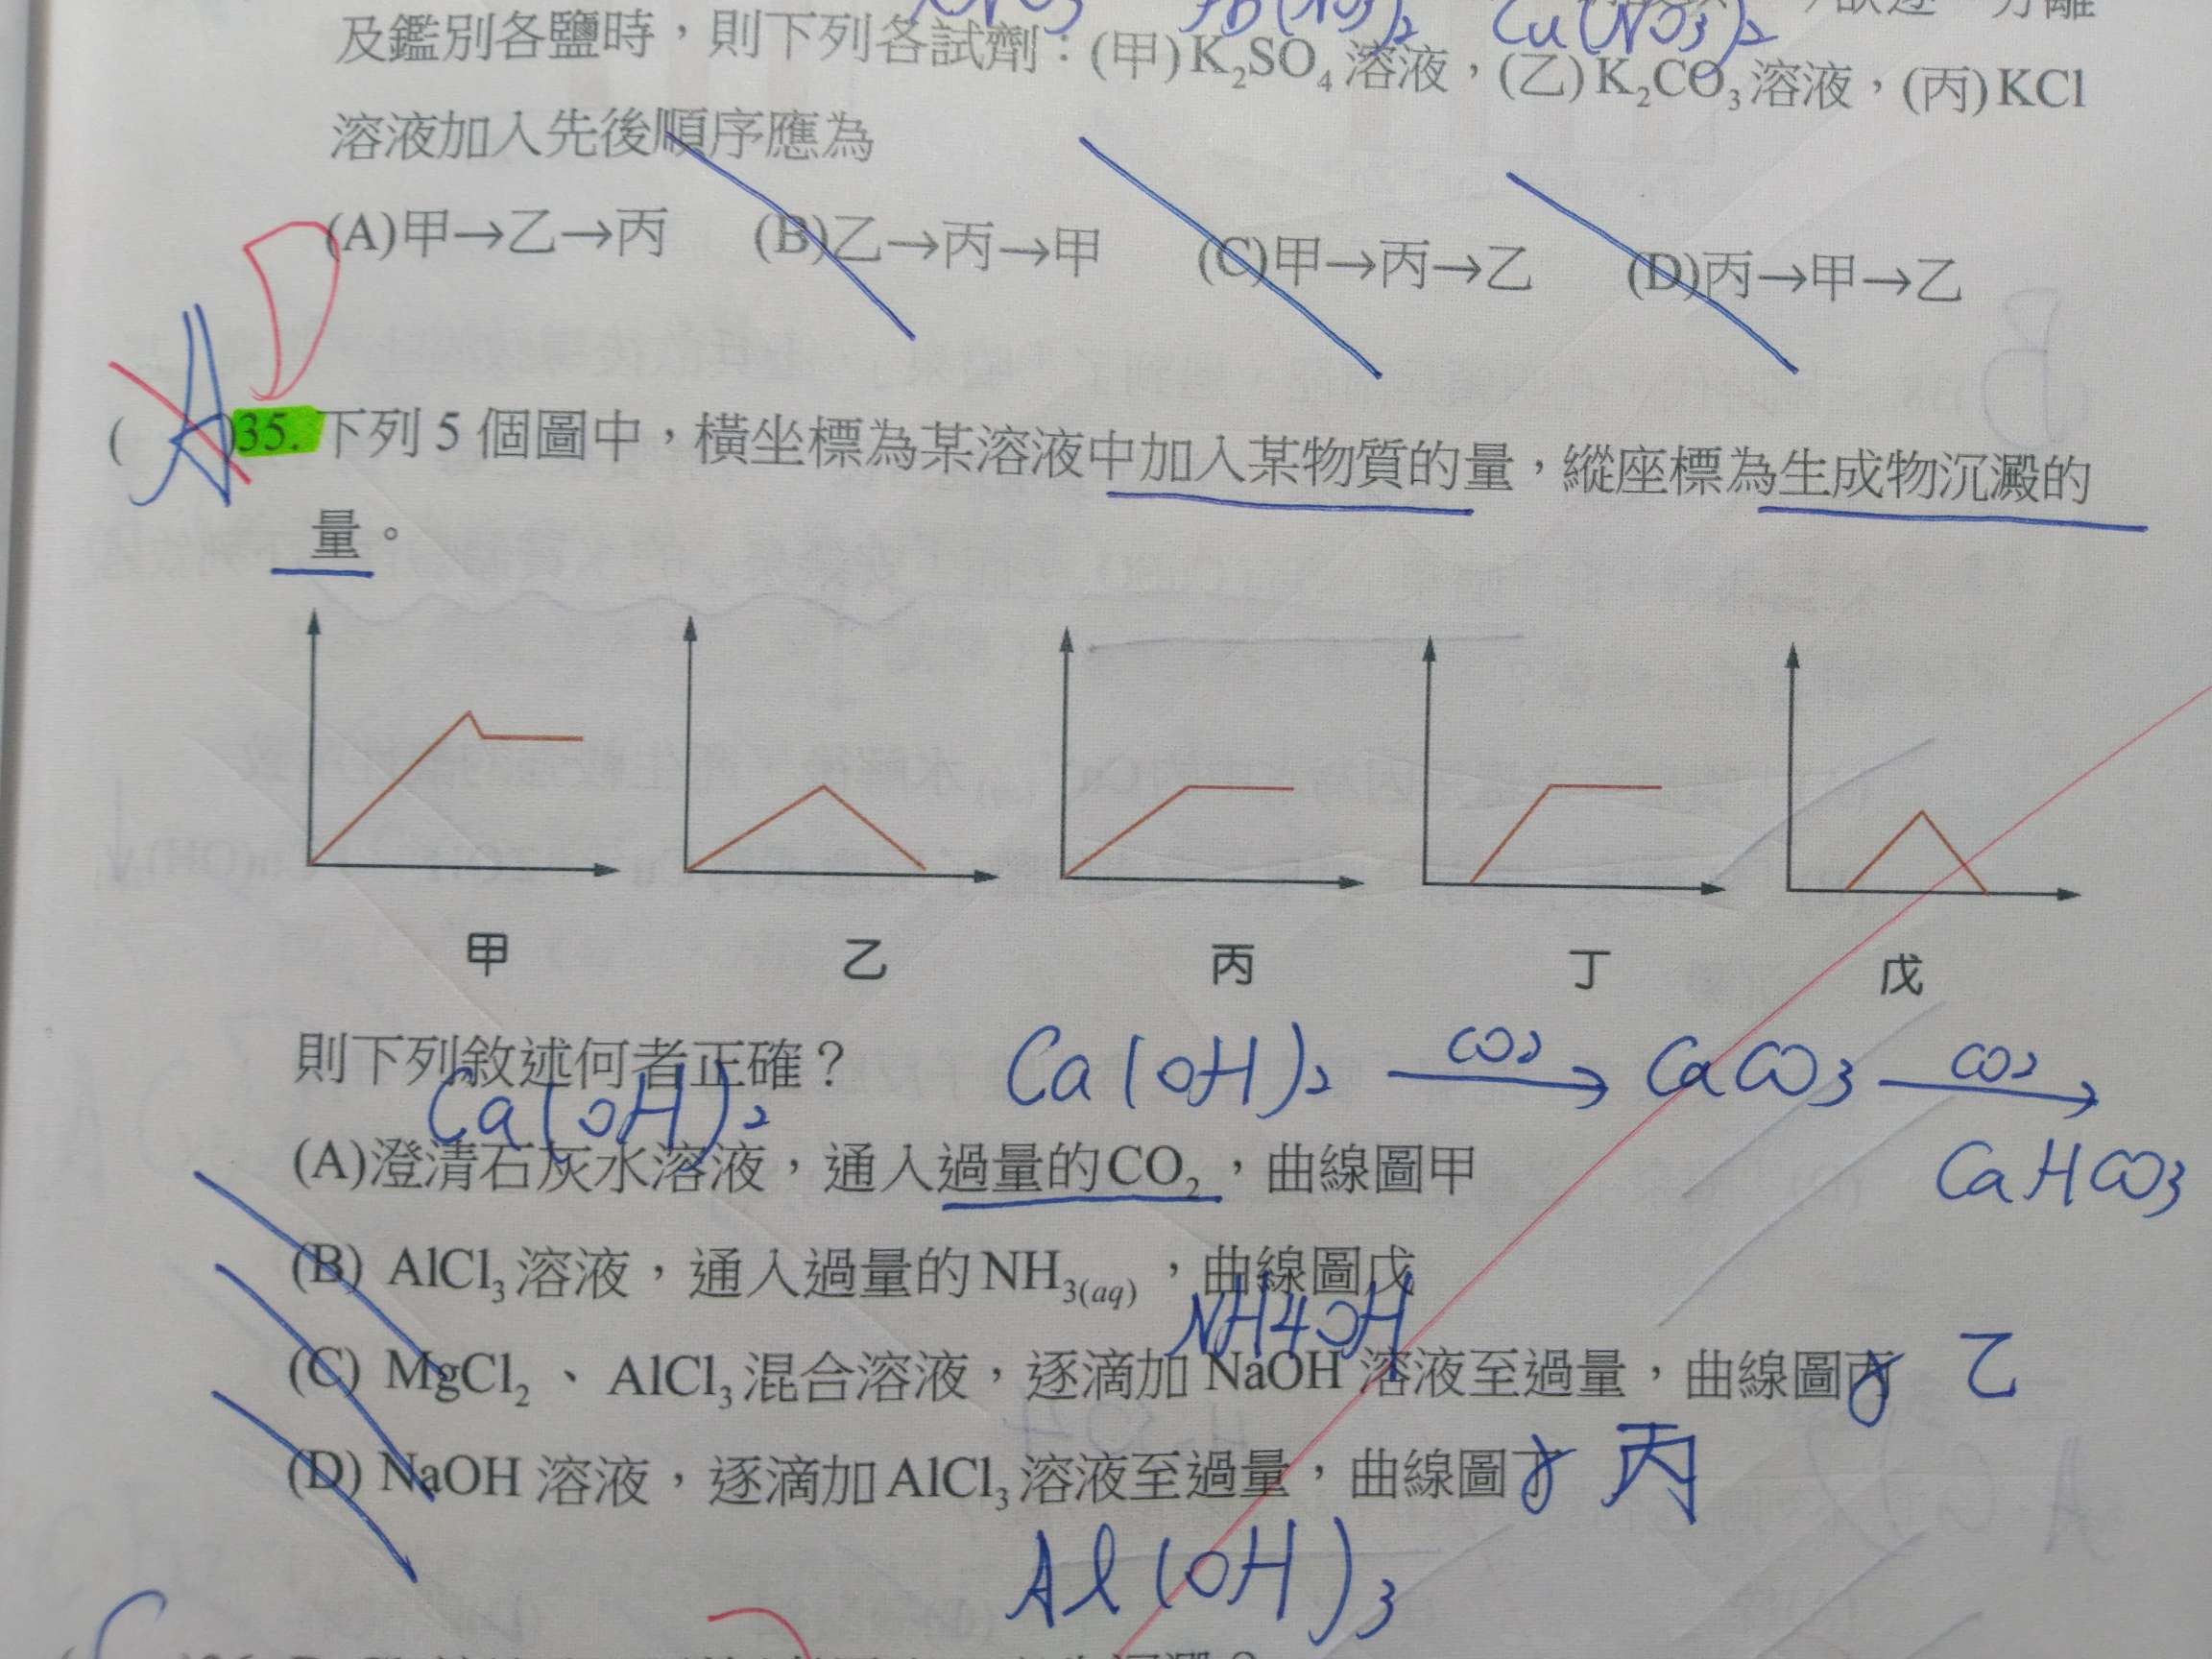 Pb(NO3)2 Cu(NO3)2
及鑑別各鹽時，則下列各試劑：(甲)K₂SO₄溶液，(乙)K₂CO₃溶液，(丙)KCl
溶液加入先後順序應為
(A)甲→乙→丙 (B)乙→丙→甲 (C)甲→丙→乙 (D)丙→甲→乙
D
( A )35. 下列 5 個圖中，橫坐標為某溶液中加入某物質的量，縱座標為生成物沉澱的
量。
甲 乙 丙 丁 戊
則下列敘述何者正確？ Ca(OH)2 CO2→ CaCO3 CO2→
Ca(OH)2
CaHCO3
(A)澄清石灰水溶液，通入過量的CO₂，曲線圖甲
(B) AlCl₃溶液，通入過量的NH₃₍aq₎，曲線圖戊
NH4OH
(C) MgCl₂、AlCl₃混合溶液，逐滴加 NaOH 溶液至過量，曲線圖丙 乙
(D) NaOH 溶液，逐滴加AlCl₃溶液至過量，曲線圖丁 丙
Al(OH)3